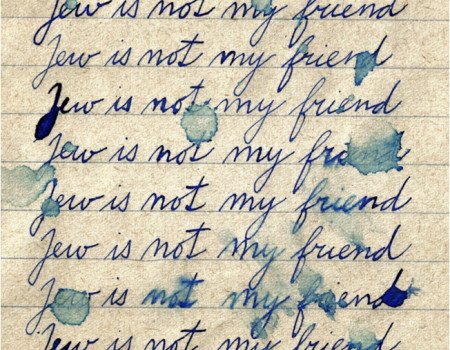 Jew is not my friend
Jew is not my friend
Jew is not my friend
Jew is not my friend
Jew is not my friend
Jew is not my friend
Jew is not my friend
Jew is not my friend